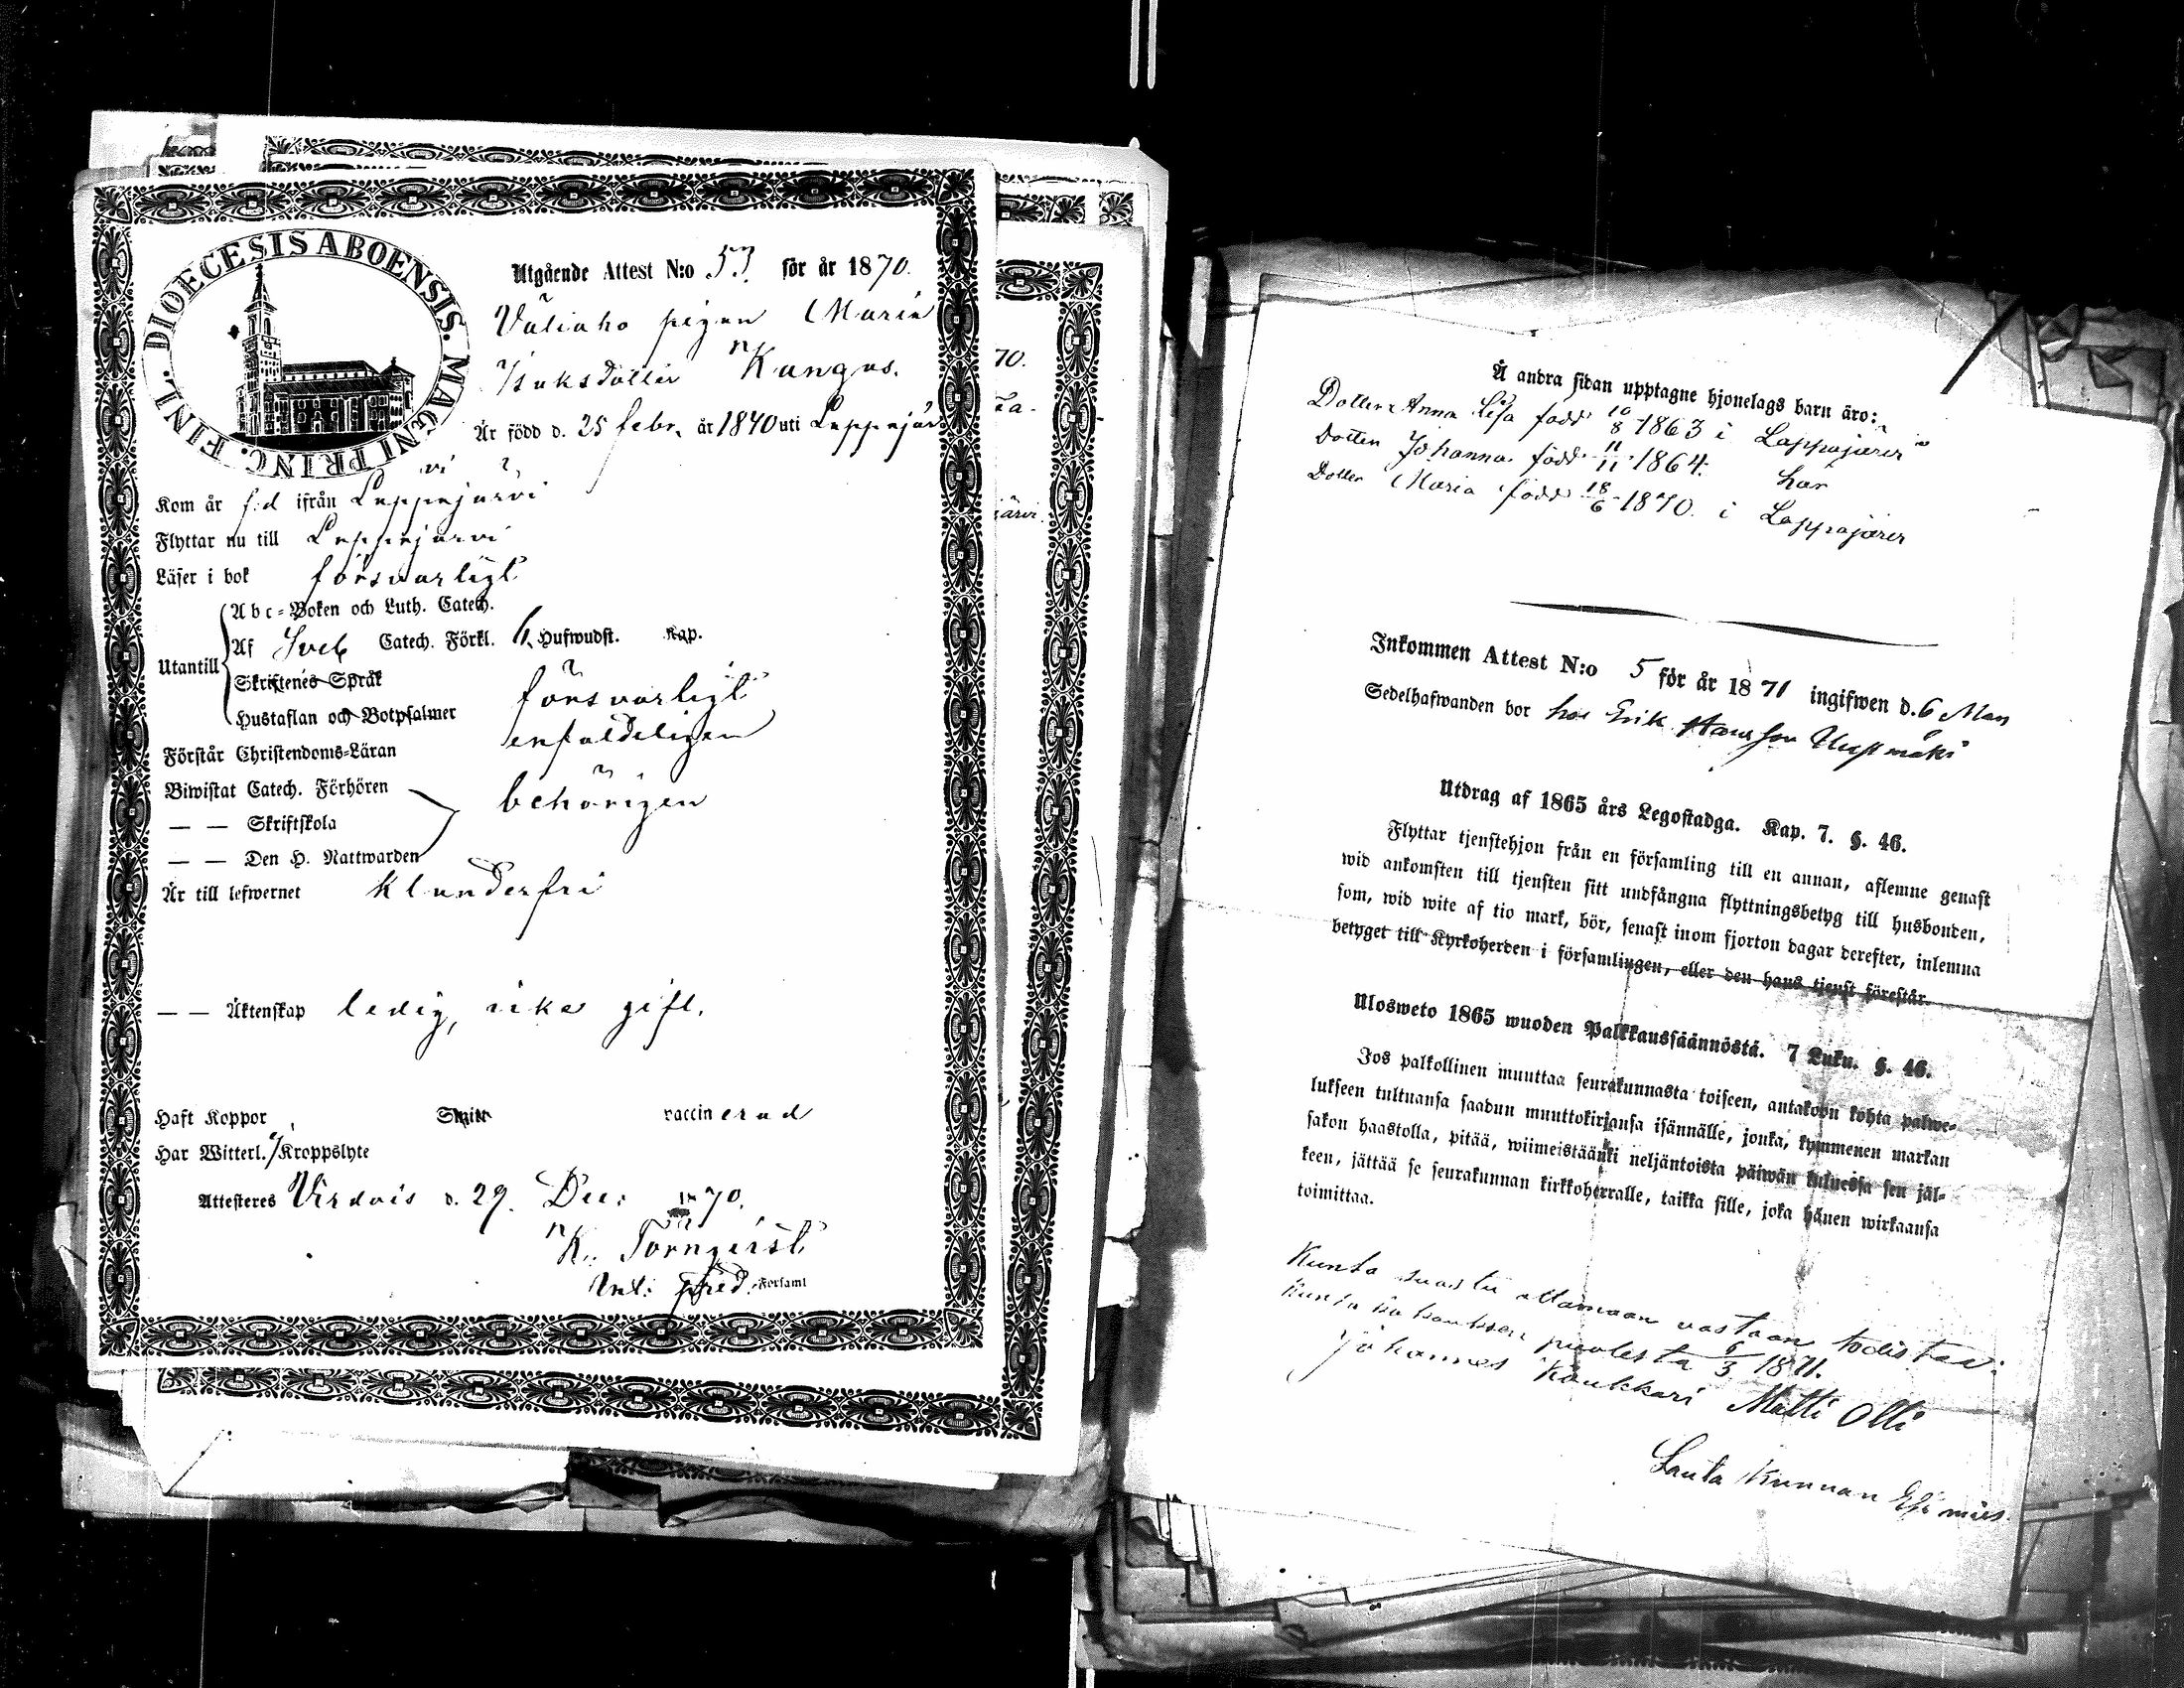 DIOECESIS ABOENSIS. MAGNI PRINC. FINL.
Utgående Attest N:o 53 för år 1870.
Väliaho pigan Maria
Isaksdotter Kangas.
Är född d. 25 febr. år 1840 uti Lappajär
vi
Kom år f:d ifrån Lappajärvi
Flyttar nu till Lappajärvi
Läser i bok försvarligt
Abc-Boken och Luth. Catech.
Af Sveb Catech. Förkl. 6 Hufwudst. Kap.
Utantill
Skriftenes Språk
Hustaflan och Botpsalmer försvarligt
Förstår Christendoms-Läran enfaldeligen
Biwistat Catech. Förhören
— — Skriftskola behörigen
— — Den H. Nattwarden
Är till lefwernet klanderfri
— — Äktenskap ledig, icke gift.
Haft Koppor vaccinerad
Har Witterl. Kroppslyte
Attesteres Virdois d. 29. Dec: 1870.
K. Törnqvist
Församl
70.
järvi.
Å andra sidan upptagne hjonelags barn äro:
Dotter Anna Lisa född 10/8 1863 i Lappajärvi
Dotter Johanna född 11/11 1864. här
Dotter Maria född 18/6 1870. i Lappajärvi
Inkommen Attest N:o 5 för år 1871 ingifwen d. 6 Mars
Sedelhafwanden bor hos Erik Hansson
Utdrag af 1865 års Legostadga. Kap. 7. §. 46.
Flyttar tjenstehjon från en församling till en annan, aflemne genast
wid ankomsten till tjensten sitt undfångna flyttningsbetyg till husbonden,
som, wid wite af tio mark, bör, senast inom fjorton dagar derefter, inlemna
betyget till Kyrkoherden i församlingen, eller den hans tjenst förestår.
Ulosweto 1865 wuoden Palkkaussäännöstä. 7 Luku. §. 46.
Jos palkollinen muuttaa seurakunnasta toiseen, antakoon kohta palwe-
lukseen tultuansa saadun muuttokirjansa isännälle, jonka, kymmenen markan
sakon haastolla, pitää, wiimeistäänki neljäntoista päiwän kuluessa sen jäl-
keen, jättää se seurakunnan kirkkoherralle, taikka sille, joka hänen wirkaansa
toimittaa.
Kunta suostu ottamaan vastaan todistaa:
Kunta puolesta 6/3 1871.
Johannes Kaukkari Matti Olli
Lauta Kunnan Esi mies.